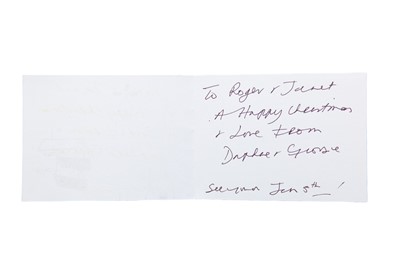 To Roger & Janet
A Happy Christmas
& Love From
Daphne &
See you Jan 5th!